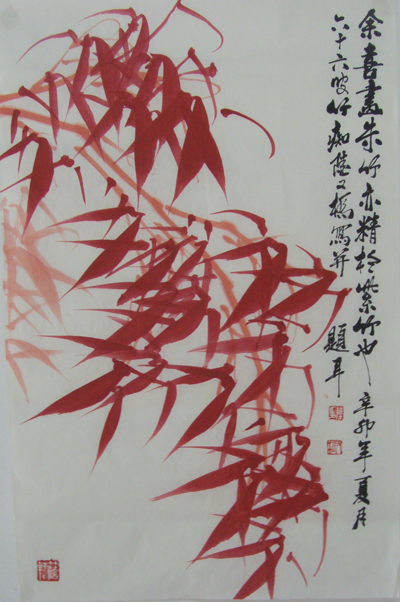 余喜畫朱竹亦精於紫竹也辛卯年夏月
六十六叟竹痴陸又橋寫并
題耳